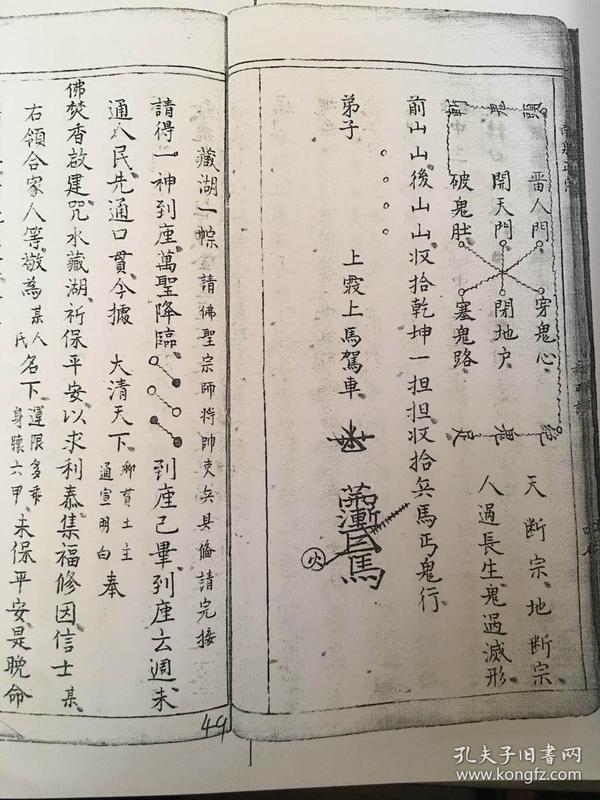 畨人門 穿鬼心
開天門 閉地户
破鬼肚 塞鬼路
天断宗、地断宗、
人過長生、鬼過滅形
前山山後山山、收拾乾坤一担担、收拾兵馬丐鬼行、
弟子 上霞上馬駕車
火
馬
藏湖一幡 請佛聖宗師将帥吏兵具俻請完接
請得一神到座、萬聖降臨、到座已畢、到座云週、未
通人民、先通口貫、今據 大清天下、鄉貫土主 通宣明白 奉
佛焚香啟建咒水藏湖、祈保平安以求利泰、集福修因信士某
右領合家人等、敬為某人氏名下、運限多乖 身懷六甲、未保平安、是晚命
49
孔夫子旧书网
www.kongfz.com